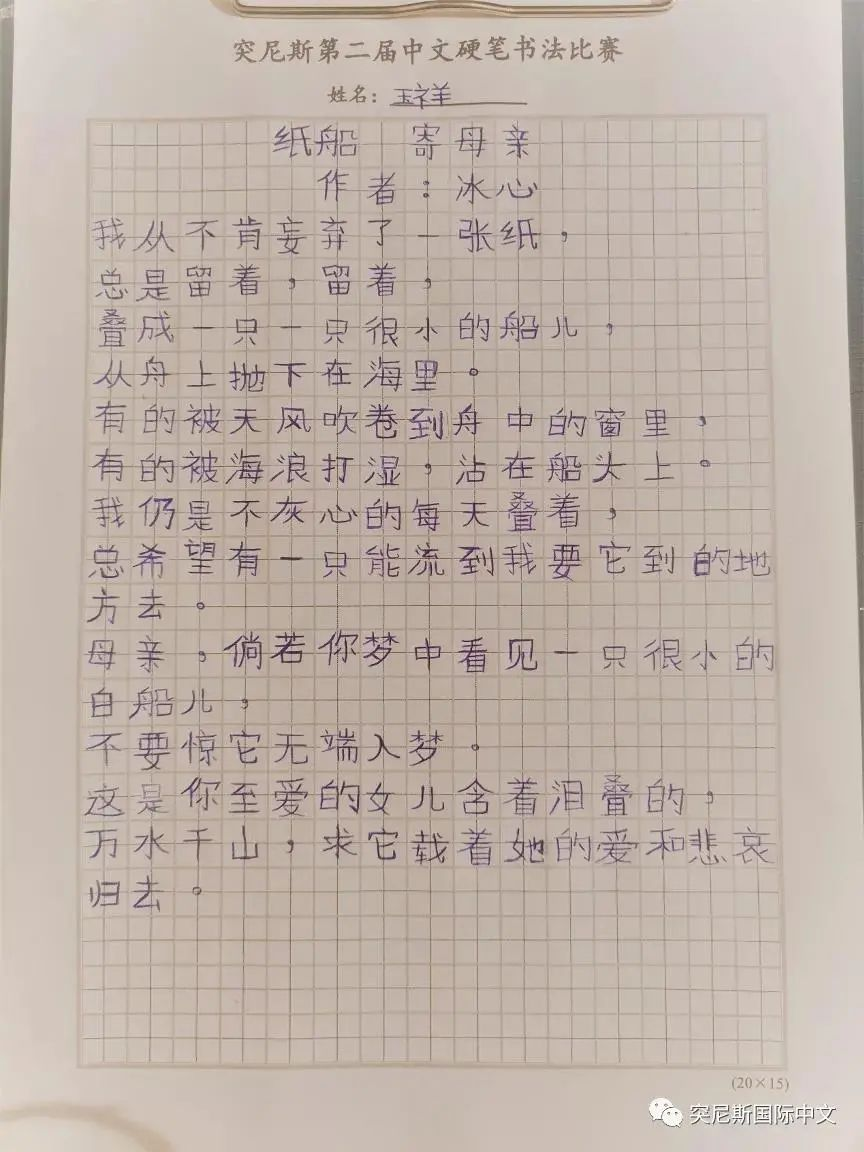 突尼斯第二届中文硬笔书法比赛
姓名：玉祥
纸船 寄母亲
作者：冰心
我从不肯妄弃了一张纸，
总是留着，留着，
叠成一只一只很小的船儿，
从舟上抛下在海里。
有的被天风吹卷到舟中的窗里，
有的被海浪打湿，沾在船头上。
我仍是不灰心的每天叠着，
总希望有一只能流到我要它到的地
方去。
母亲，倘若你梦中看见一只很小的
白船儿，
不要惊它无端入梦。
这是你至爱的女儿含着泪叠的，
万水千山，求它载着她的爱和悲哀
归去。
(20×15)
突尼斯国际中文